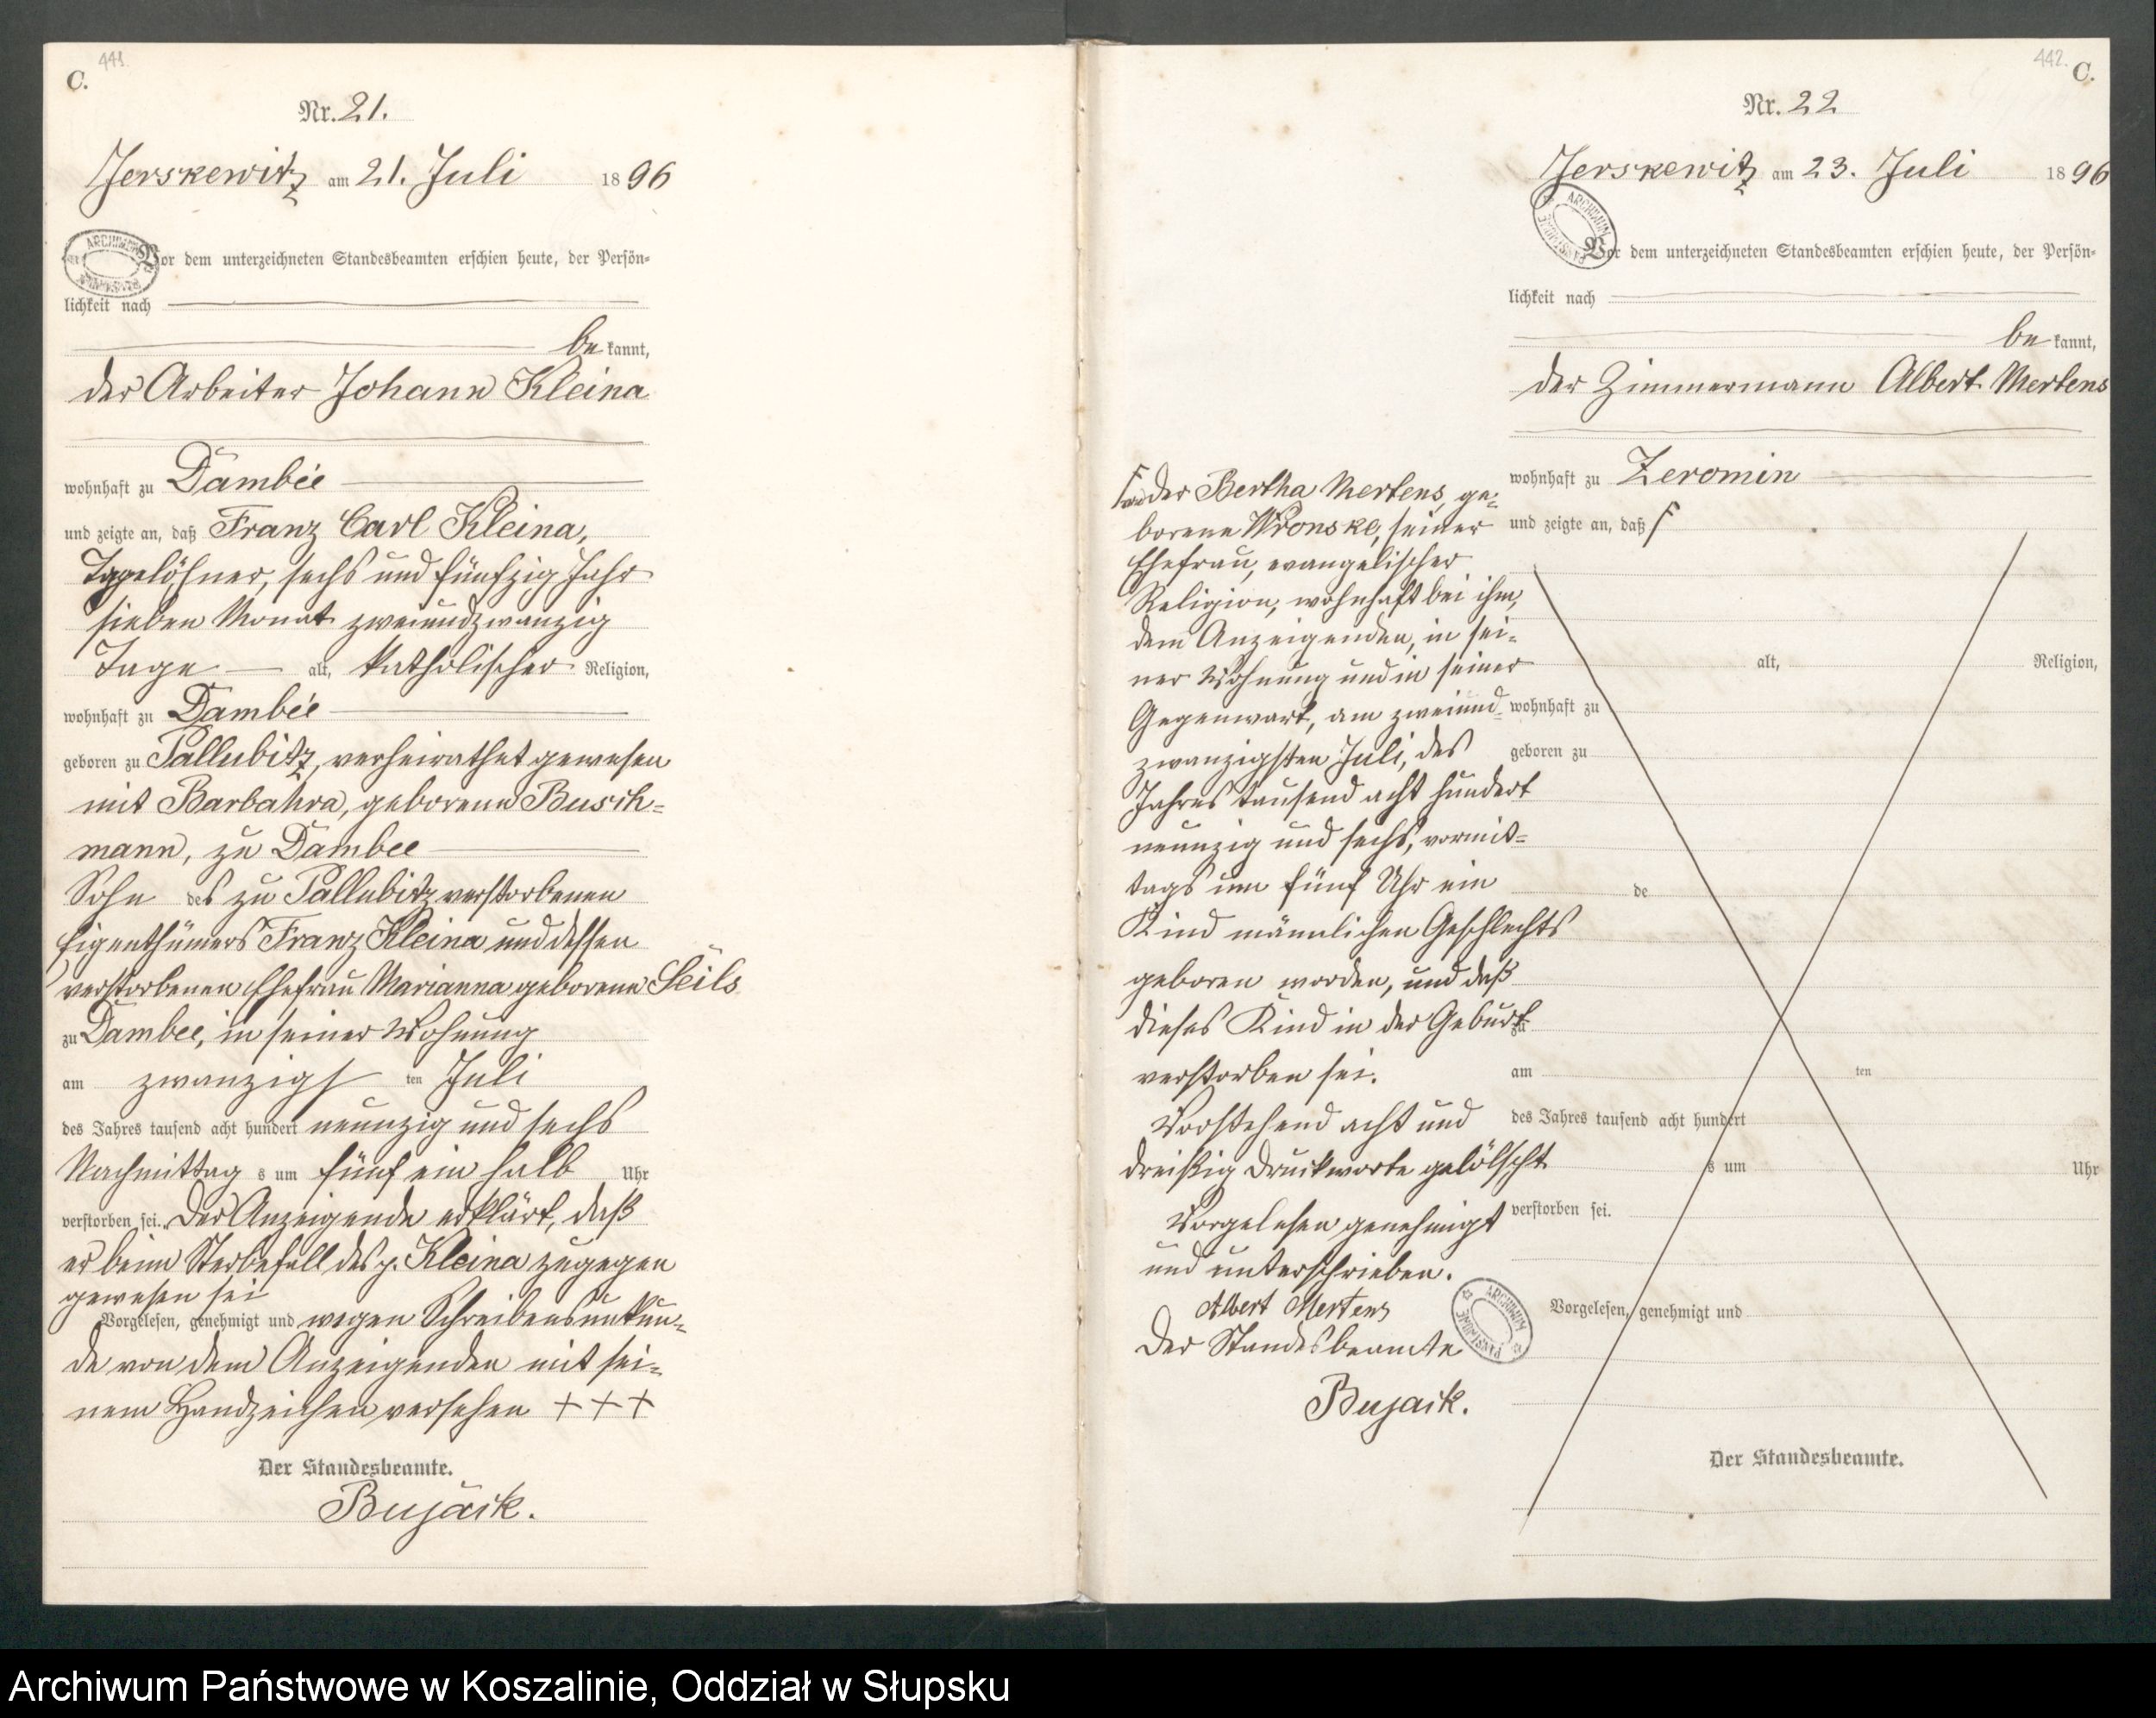 441.
C.
Nr. 21.
Jerskewitz am 21. Juli 1896
Vor dem unterzeichneten Standesbeamten erschien heute, der Persön-
lichkeit nach
be kannt,
der Arbeiter Johann Kleina
wohnhaft zu Dambée
und zeigte an, daß Franz Carl Kleina,
Tagelöhner, sechs und fünfzig Jahr
sieben Monat zweiundzwanzig
Tage alt, katholischer Religion,
wohnhaft zu Dambée
geboren zu Pallubitz, verheirathet gewesen
mit Barbahra, geborene Busch-
mann, zu Dambee
Sohn des zu Pallubitz verstorbenen
Eigenthümers Franz Kleina und dessen
verstorbenen Ehefrau Marianna geborene Seils
zu Dambee, in seiner Wohnung
am zwanzigs ten Juli
des Jahres tausend acht hundert neunzig und sechs
Nachmittag s um fünf ein halb Uhr
verstorben sei. Der Anzeigende erklärt, daß
er beim Sterbefall des p. Kleina zugegen
gewesen sei
Vorgelesen, genehmigt und wegen Schreibensunkun-
de von dem Anzeigenden mit sei-
nem Handzeichen versehen + + +
Der Standesbeamte.
Bujack.
442.
C.
Nr. 22
Jerskewitz am 23. Juli 1896
Vor dem unterzeichneten Standesbeamten erschien heute, der Persön-
lichkeit nach
be kannt,
der Zimmermann Albert Mertens
wohnhaft zu Zeromin
und zeigte an, daß
von der Bertha Mertens, ge-
borene Wronske, seiner
Ehefrau, evangelischer
Religion, wohnhaft bei ihm,
dem Anzeigenden, in sei-
ner Wohnung und in seiner
Gegenwart, am zweiund-
zwanzigsten Juli, des
Jahres tausend acht hundert
neunzig und sechs, vormit-
tags um fünf Uhr ein
Kind männlichen Geschlechts
geboren worden, und daß
dieses Kind in der Geburt
verstorben sei.
Vorstehend acht und
dreißig Druckworte gelöscht
Vorgelesen genehmigt
und unterschrieben.
Albert Mertens
Der Standesbeamte
Bujack.
alt, Religion,
wohnhaft zu
geboren zu
de
zu
am ten
des Jahres tausend acht hundert
s um Uhr
verstorben sei.
Vorgelesen, genehmigt und
Der Standesbeamte.
ARCHIWUM PAŃSTWOWE
Archiwum Państwowe w Koszalinie, Oddział w Słupsku